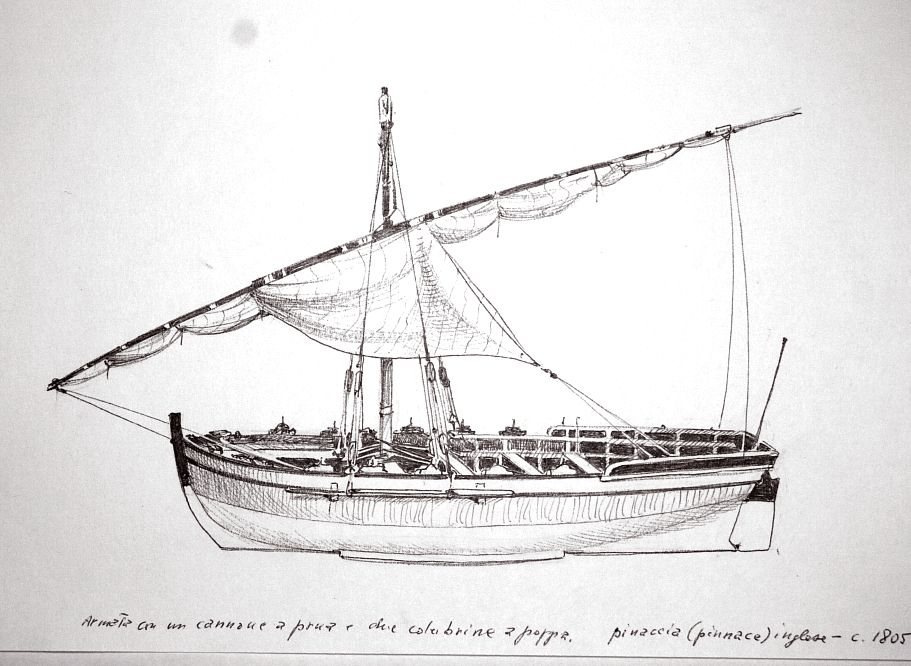 Armata con un cannone a prua e due colubrine a poppa. pinaccia (pinnace) inglese – c. 1805